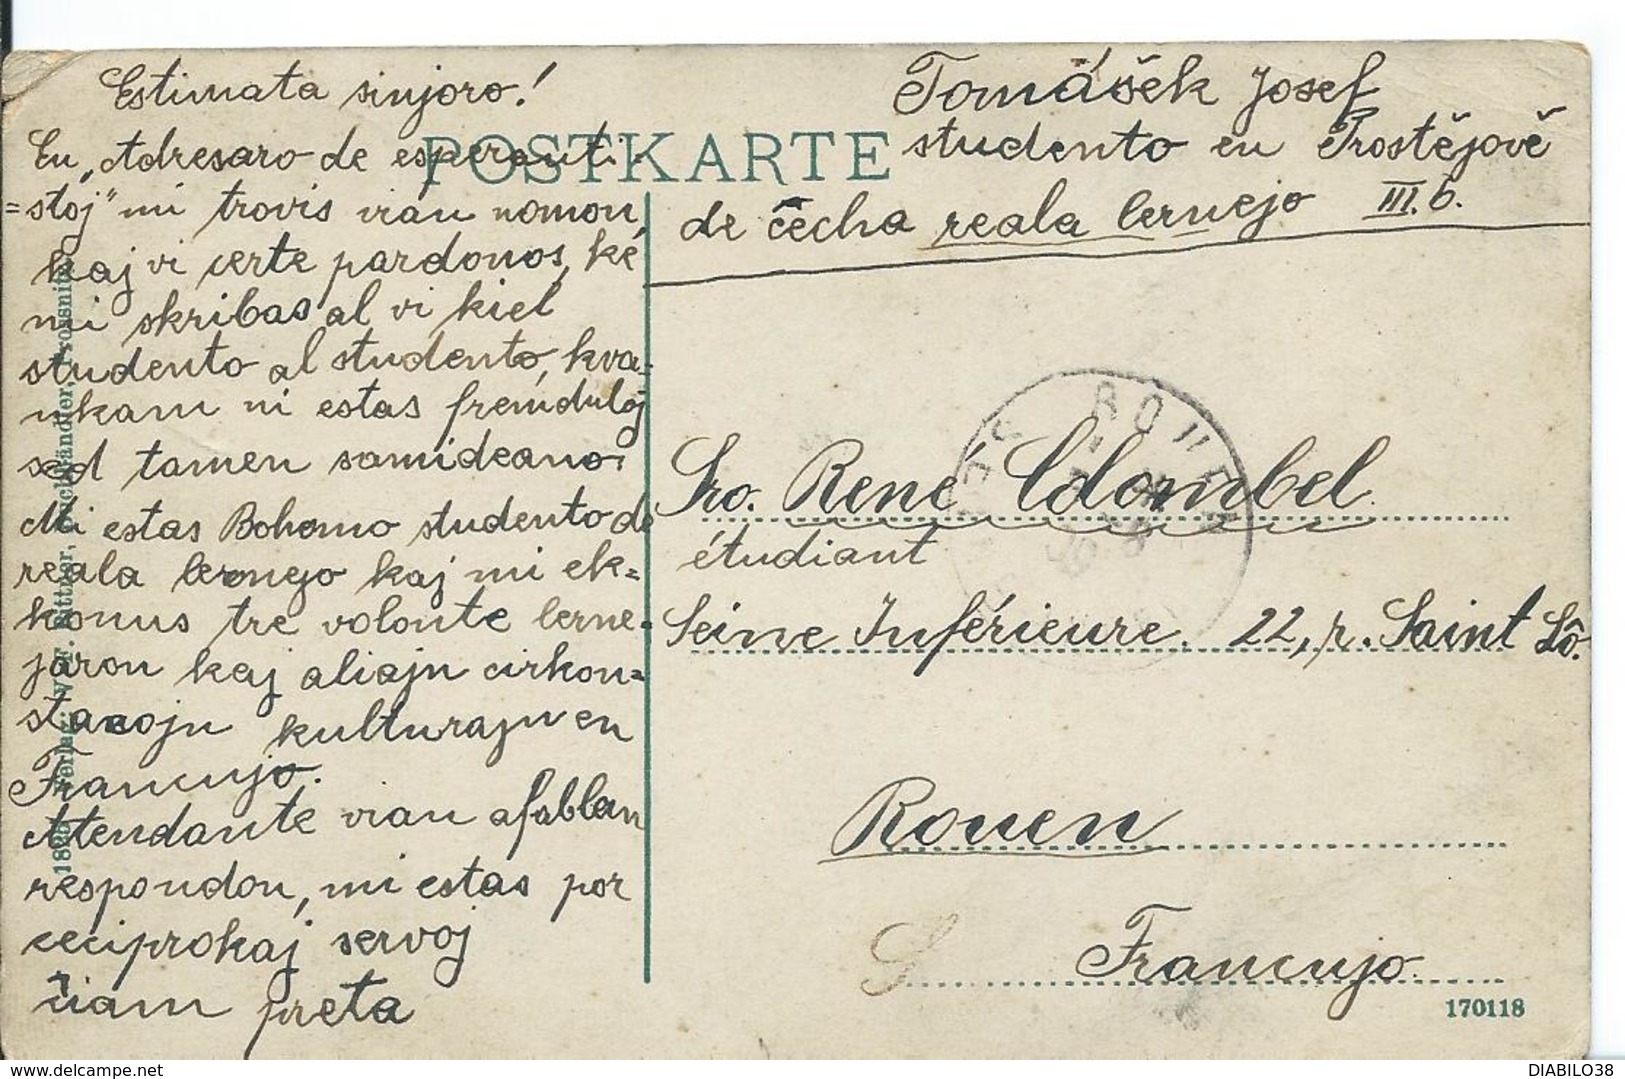 Estimata sinjoro!
En „Adresaro de esperanti-
=stoj" mi trovis vian nomon,
kaj vi certe pardonos, ke
mi skribas al vi kiel
studento al studento, kva=
nkam ni estas fremduloj
sed tamen samideano.
Mi estas Bohemo studento de
reala lernejo kaj mi ek=
konus tre volonte lerne=
jaron kaj aliajn cirkon=
stancojn kulturajn en
Francujo.
Atendante vian afablan
respondon, mi estas por
reciprokaj servoj
ĉiam preta
POSTKARTE
Tomášek Josef
studento en Prostějově
de čecha reala lernejo III. b.
Sro. René Colombel
étudiant
Seine Inférieure. 22, r. Saint Lô.
Rouen
Francujo.
ROUEN
170118
DIABILO38
www.delcampe.net